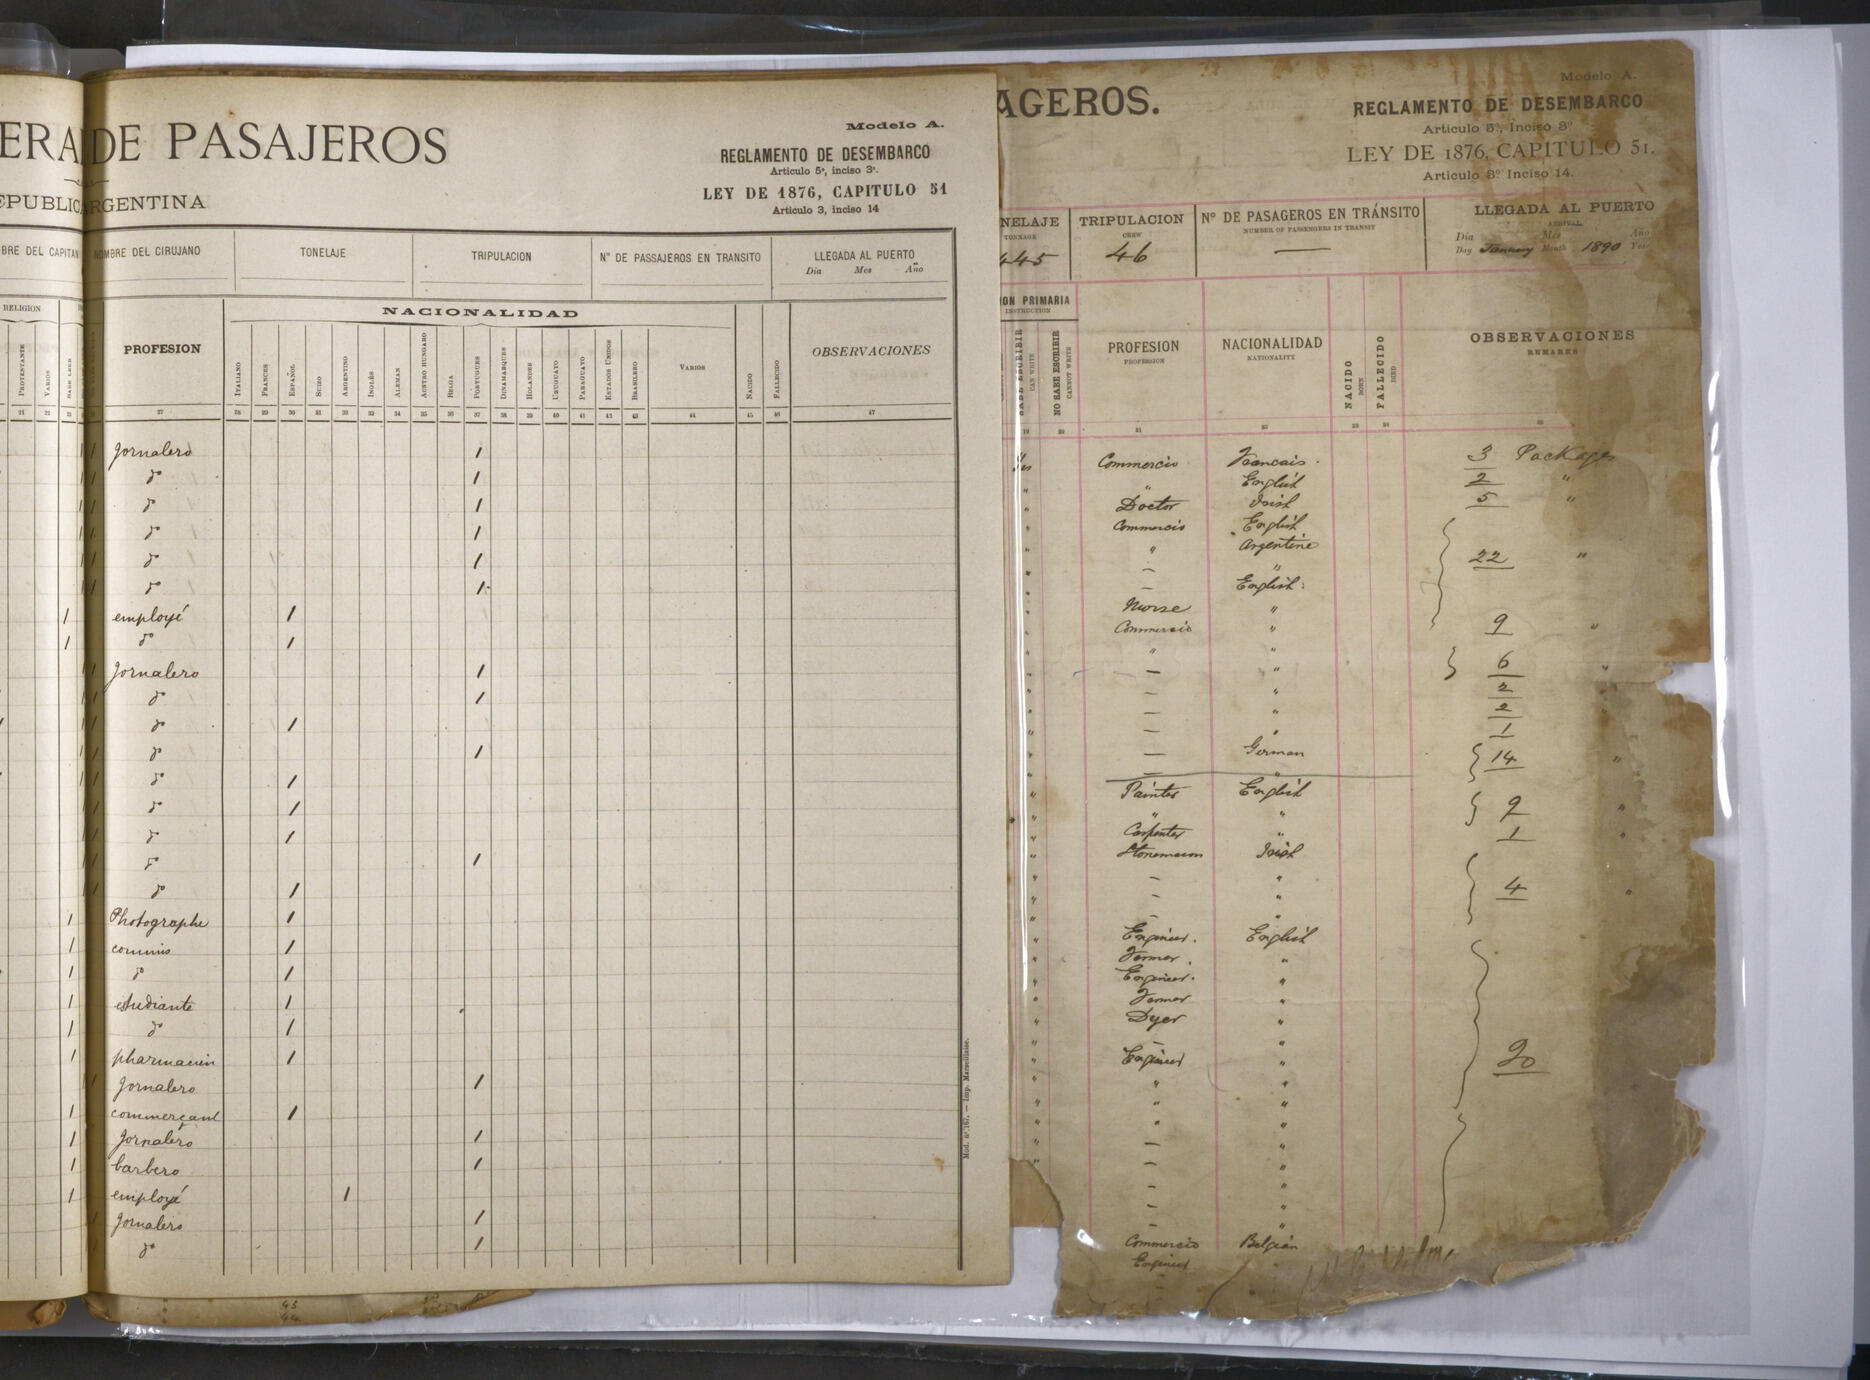 ERA DE PASAJEROS
EPUBLIC ARGENTINA
Modelo A.
REGLAMENTO DE DESEMBARCO
Articulo 5º, inciso 3º.
LEY DE 1876, CAPITULO 51
Articulo 3, inciso 14
BRE DEL CAPITAN
NOMBRE DEL CIRUJANO
TONELAJE
TRIPULACION
Nº DE PASSAJEROS EN TRANSITO
LLEGADA AL PUERTO
Dia Mes Año
RELIGION
NACIONALIDAD
PROTESTANTE
VARIOS
SABE LEER
PROFESION
ITALIANO
FRANCES
ESPAÑOL
SUIZO
ARGENTINO
INGLÉS
ALEMAN
AUSTRO HUNGARO
BELGA
PORTUGUES
DINAMARQUES
HOLANDES
URUGUAYO
PARAGUAYO
ESTADOS UNIDOS
BRASILERO
VARIOS
NACIDO
FALLECIDO
OBSERVACIONES
21 22 23 27 28 29 30 31 32 33 34 35 36 37 38 39 40 41 42 43 44 45 46 47
1 1 Jornalero 1
1 1 do 1
1 1 do 1
1 1 do 1
1 1 do 1
1 1 do 1
1 employé 1
1 do 1
1 1 Jornalero 1
1 1 do 1
1 1 do 1
1 1 do 1
1 1 do 1
1 1 do 1
1 1 do 1
1 1 do 1
1 1 do 1
1 Photographe 1
1 commis 1
1 do 1
1 estudiante 1
1 do 1
1 pharmacien 1
1 Jornalero 1
1 commerçant 1
1 Jornalero 1
1 barbero 1
1 employé 1
1 Jornalero 1
do 1
Mod. nº 167. — Imp. Marseillaise.
43
44
AGEROS.
Modelo A.
REGLAMENTO DE DESEMBARCO
Articulo 5º, Inciso 3º
LEY DE 1876, CAPITULO 51.
Articulo 3º Inciso 14.
NELAJE
TONNAGE
445
TRIPULACION
CREW
46
Nº DE PASAGEROS EN TRÁNSITO
NUMBER OF PASSENGERS IN TRANSIT
—
LLEGADA AL PUERTO
ARRIVAL
Dia Mes Año
Day January Month 1890 Year
ION PRIMARIA
INSTRUCTION
SABE ESCRIBIR
CAN WRITE
NO SABE ESCRIBIR
CANNOT WRITE
PROFESION
PROFESSION
NACIONALIDAD
NATIONALITY
NACIDO
BORN
FALLECIDO
DIED
OBSERVACIONES
REMARKS
19 20 21 22 23 24 25
Yes Commercio Francais. 3 Packages
" " English 2 "
" Doctor Irish 5 "
" Commercio English
" " Argentine 22 "
" — "
" English
" Nurse "
" Commercio " 9 "
" " "
" — " 6 "
" — " 2
" — " 2 "
" — " 1
" — German 14 "
— "
" Painter English
" " " 9 "
" Carpenter " 1 "
" Stonemason Irish
" — " 4 "
" — "
" — "
" Engineer. English
" Farmer. "
" Engineer. "
" Farmer "
" Dyer "
" — "
" Engineer " 20
" " "
" " "
" " "
" — "
" — "
— "
— "
— "
Commercio Belgian
Engineer "